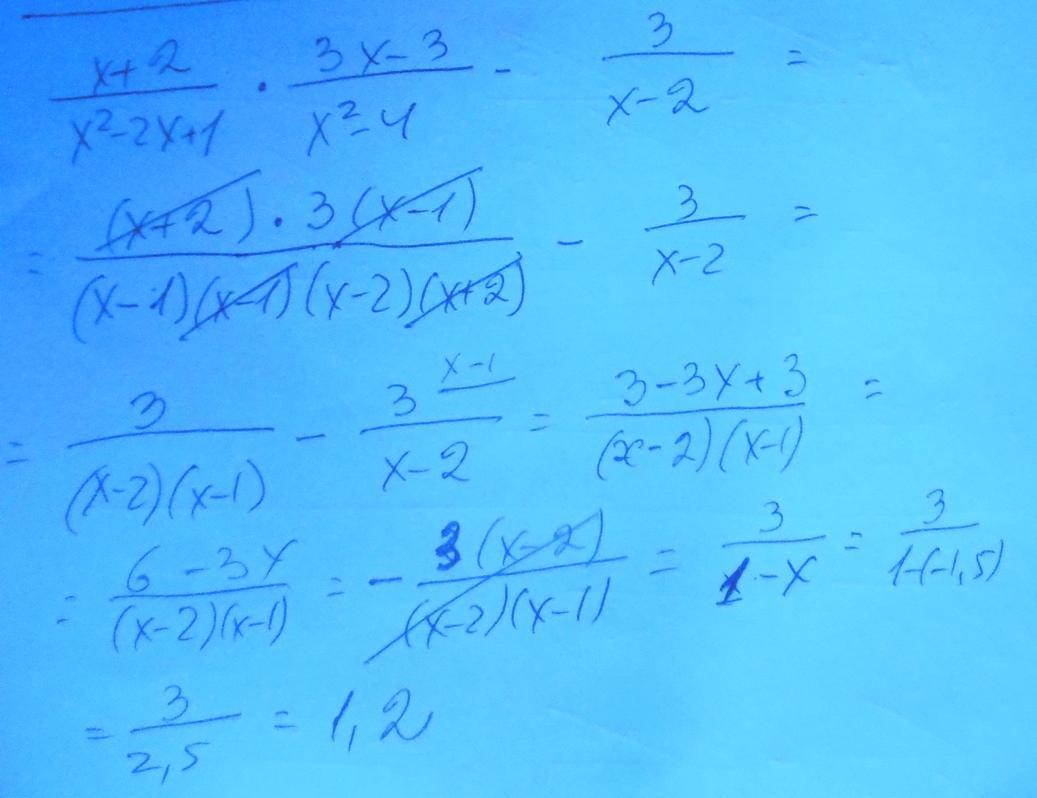 (x+2)/(x²-2x+1) · (3x-3)/(x²-4) - 3/(x-2) =
= ((x+2)·3(x-1))/((x-1)(x-1)(x-2)(x+2)) - 3/(x-2) =
= 3/((x-2)(x-1)) - 3^(x-1)/(x-2) = (3-3x+3)/((x-2)(x-1)) =
= (6-3x)/((x-2)(x-1)) = - (3(x-2))/((x-2)(x-1)) = 3/(1-x) = 3/(1-(-1,5))
= 3/(2,5) = 1,2